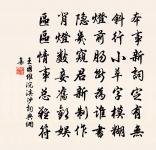 本事新詞定有無
斜行小草字模糊
燈前腸斷為誰書
隱幾窺君新制作
背燈數妾舊歡娛
區區情事總難符
王國維浣溪沙詞典網
集